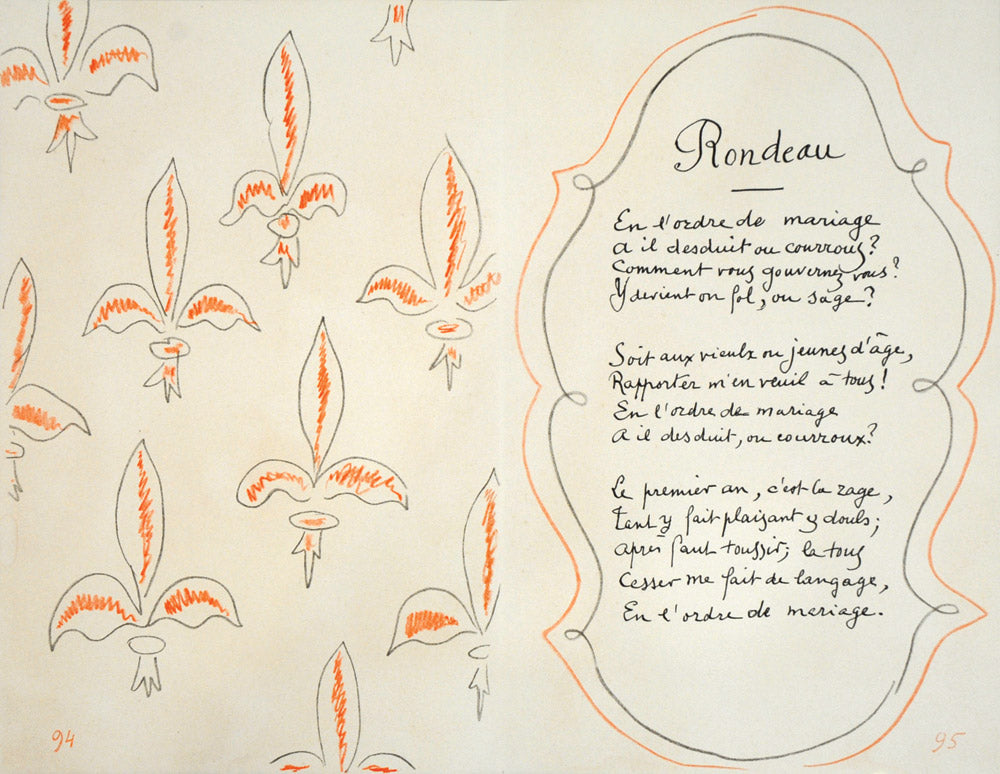 Rondeau
En l'ordre de mariage
a il desduit ou courrouz?
Comment vous gouvernez vous?
Y devient on fol, ou sage?
Soit aux vieulx ou jeunes d'âge,
Rapporter m'en veuil à tous!
En l'ordre de mariage
a il desduit, ou courroux?
Le premier an, c'est la rage,
Tant y fait plaisant y doulx;
après faut toussir; la tous
Cesser me fait de langage,
En l'ordre de mariage.
94
95